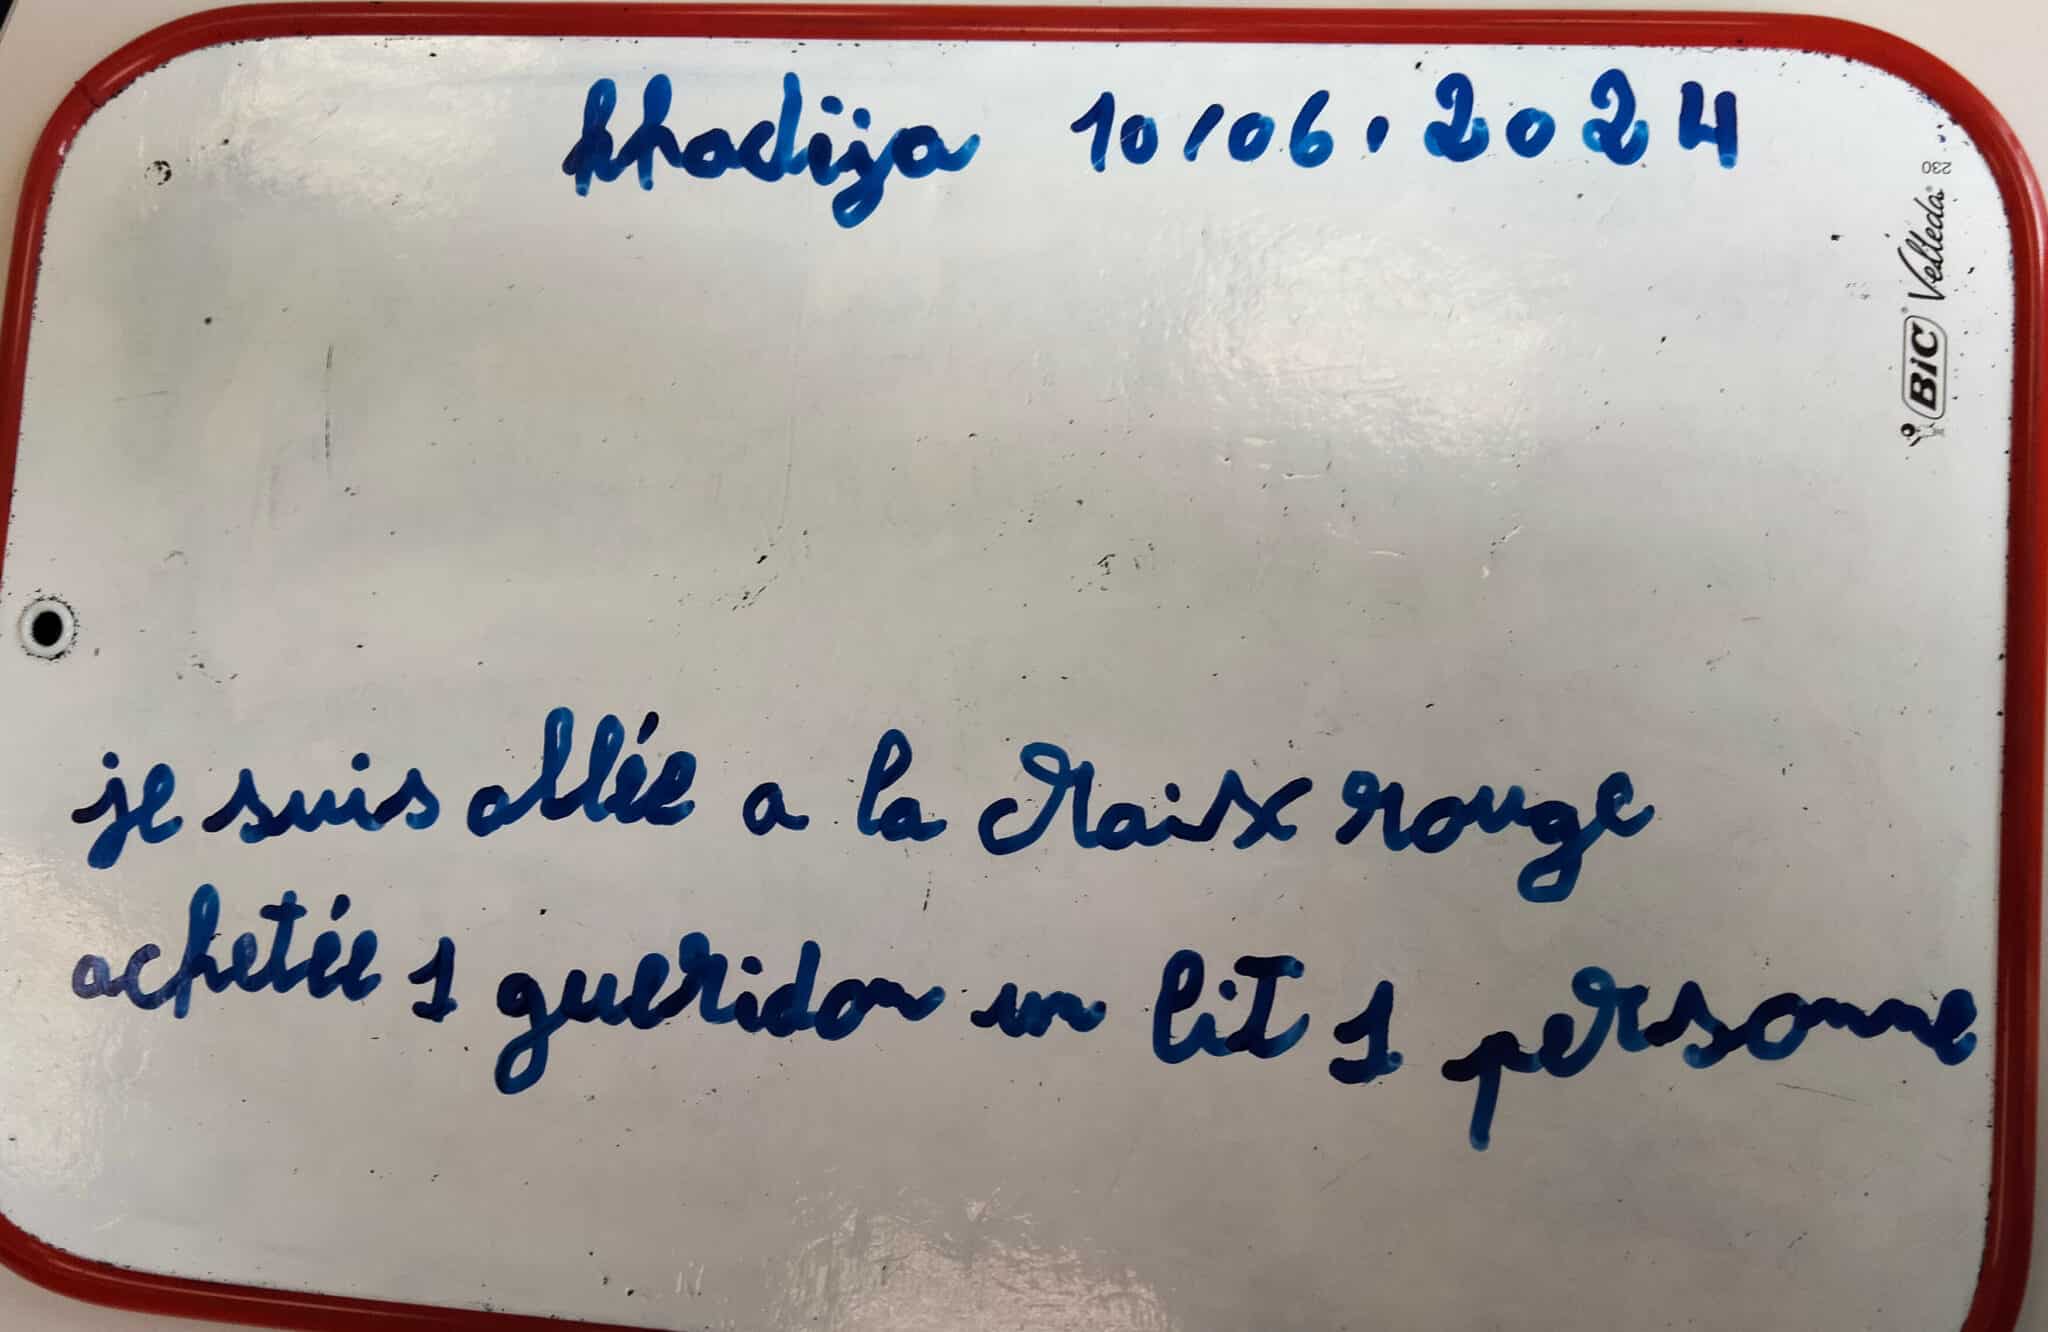 khadija 10/06.2024
230
BIC Velleda
je suis allée a la Craix rouge
achetée 1 gueridon un lit 1 personne